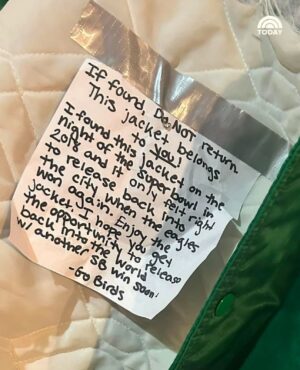 TODAY
If found DO NOT return
This jacket belongs
to you!
I found this jacket on the
night of the super bowl in
2018 and it only felt right
to release back into
the city when the eagles
won again. Enjoy the
jacket. I hope you get
the opportunity to release
back into the world
w/ another SB win soon!
-Go Birds